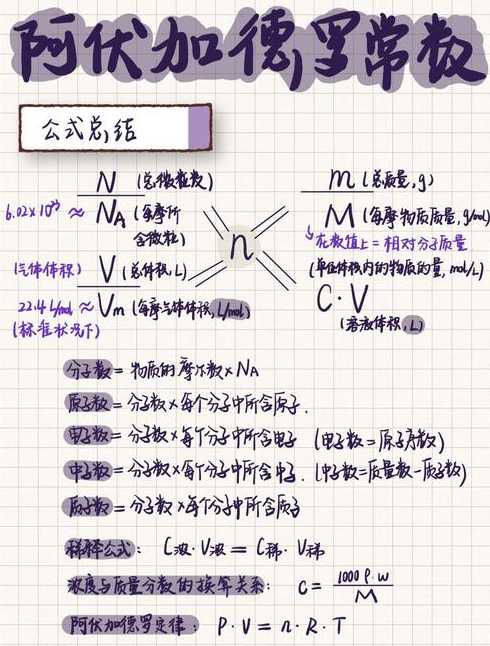 阿伏加德罗常数
公式总结
N (总微粒数)
6.02×10²³ ≈ N_A (每摩所含微粒)
m (总质量, g)
M (每摩物质质量, g/mol)
在数值上=相对分子质量
n
(气体体积) V (总体积, L)
22.4 L/mol ≈ Vm (每摩气体体积, L/mol)
(标准状况下)
(单位体积内的物质的量, mol/L)
C·V
(溶液体积, L)
分子数 = 物质的摩尔数×N_A
原子数 = 分子数×每个分子中所含原子.
电子数 = 分子数×每个分子中所含电子 (电子数=原子序数)
中子数 = 分子数×每个分子中所含中子. (中子数=质量数-质子数)
质子数 = 分子数×每个分子中所含质子
稀释公式: C浓·V浓 = C稀·V稀
浓度与质量分数的换算关系: C = 1000ρ·w / M
阿伏加德罗定律: P·V = n·R·T